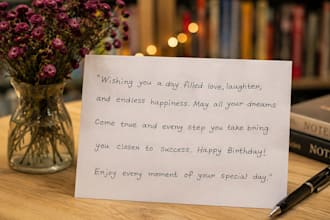 "Wishing you a day filled love, laughter,
and endless happiness. May all your dreams
Come true and every step you take bring
you closer to success. Happy Birthday!
Enjoy every moment of your special day."
NOTE